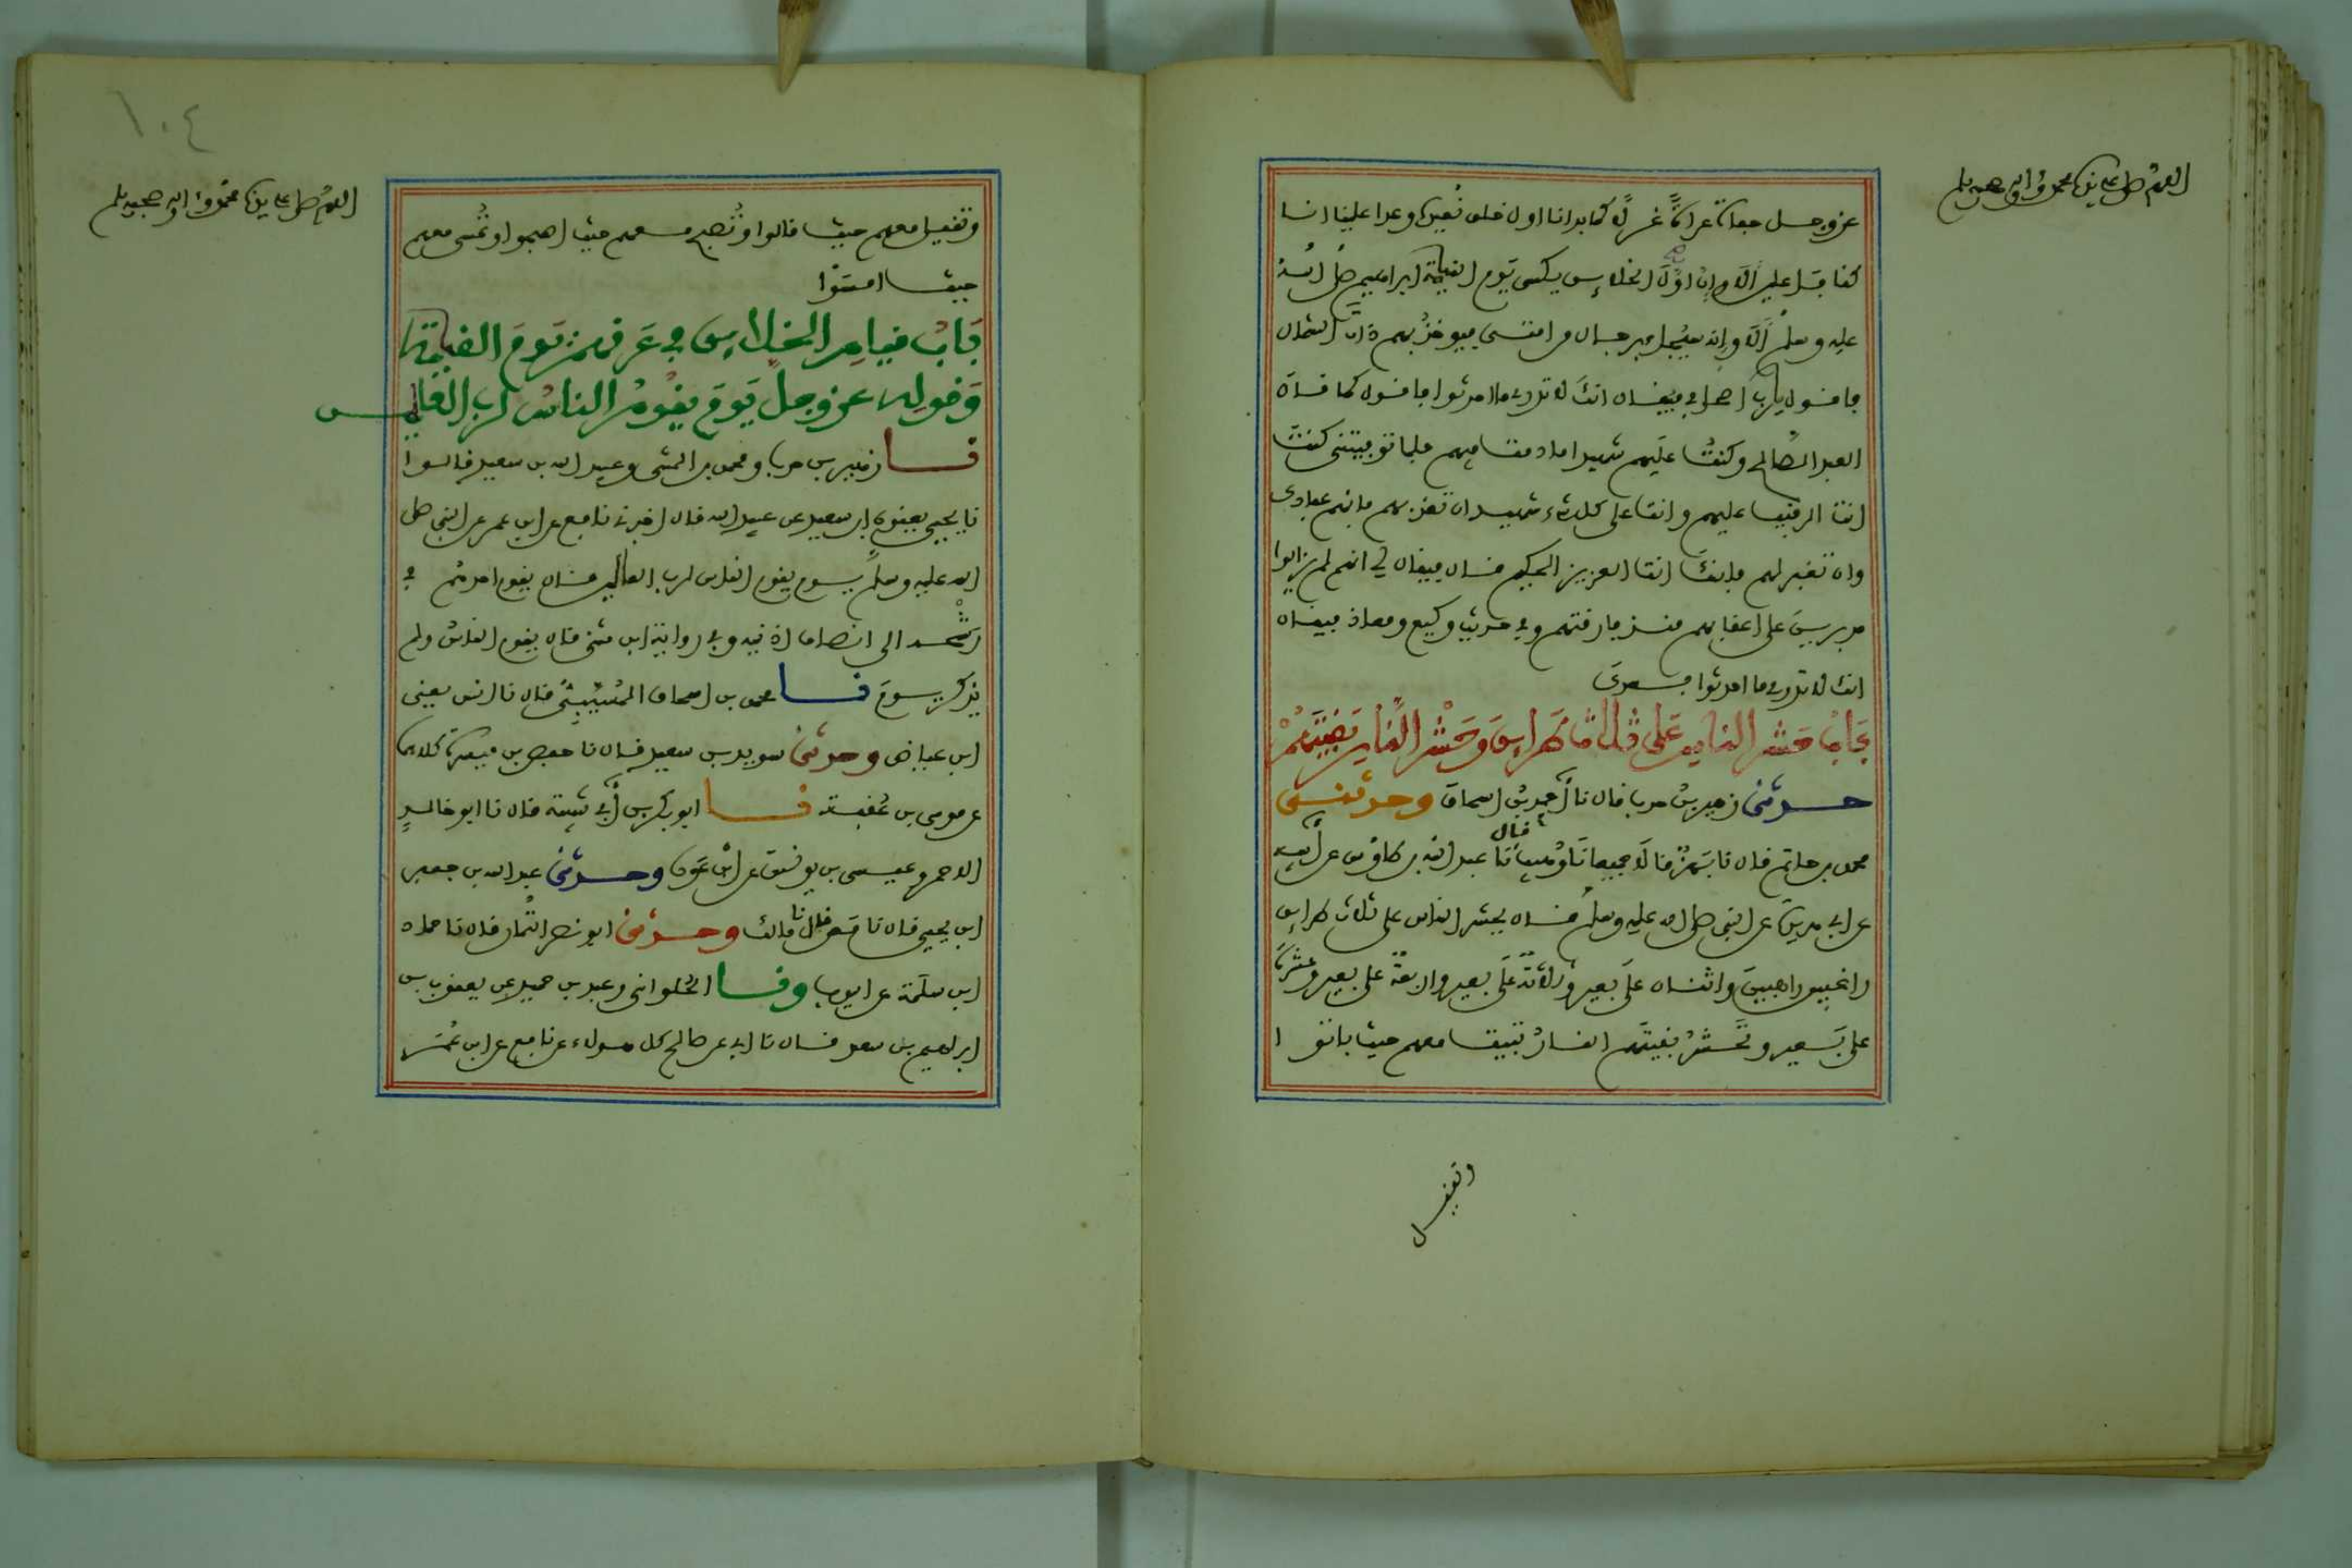 اللهم صل على سيدنا محمد وءاله وصحبه وسلم
عز وجل حفاة عراة غرلا كما بدانا اول خلق نعيده وعدا علينا انا
كنا فاعلين الا وان اول الخلايق يكسى يوم القيامة ابراهيم صلى الله
عليه وسلم الا وانه سيجاء برجال من امتى فيوخذ بهم ذات الشمال
فاقول يارب اصحابي فيقال انك لا تدري ما احدثوا فاقول كما قال
العبد الصالح وكنت عليهم شهيدا ما دمت فيهم فلما توفيتنى كنت
انت الرقيب عليهم وانت على كل شىء شهيد ان تعذبهم فانهم عبادك
وان تغفر لهم فانك انت العزيز الحكيم قال فيقال لي انهم لم يزالوا
مدبرين على اعقابهم منذ فارقتهم وفي حديث وكيع ومعاذ فيقال
انك لا تدري ما احدثوا بعدك
باب حشر الناس على ثلاث طرايق وحشر النار بقيتهم
حدثنى زهير بن حرب قال نا احمد بن اسحاق وحدثنى
محمد بن حاتم قال نا بهز قالا جميعا نا وهيب قال نا عبد الله بن طاوس عن ابيه
عن ابي هريرة عن النبي صلى الله عليه وسلم قال يحشر الناس على ثلاث طرايق
راغبين راهبين واثنان على بعير وثلاثة على بعير واربعة على بعير وعشرة
على بعير وتحشر بقيتهم النار تبيت معهم حيث باتوا
وتقيل
١٠٤
اللهم صل على سيدنا محمد وءاله وصحبه وسلم
وتقيل معهم حيث قالوا وتصبح معهم حيث اصبحوا وتمسى معهم
حيث امسوا
باب قيام الخلايق في عرقهم يوم القيامة
وقوله عز وجل يوم يقوم الناس لرب العالمين
نا زهير بن حرب ومحمد بن المثنى وعبيد الله بن سعيد قالوا
نا يحيى يعنون ابن سعيد عن عبيد الله قال اخبرنى نافع عن ابن عمر عن النبي صلى
الله عليه وسلم يوم يقوم الناس لرب العالمين قال يقوم احدهم في
رشحه الى انصاف اذنيه وفي رواية ابن مثنى قال يقوم الناس ولم
يذكر يوم نا محمد بن اسحاق المسيبي قال نا انس يعنى
ابن عياض وحدثنى سويد بن سعيد قال نا حفص بن ميسرة كلاهما
عن موسى بن عقبة نا ابو بكر بن ابي شيبة قال نا ابو خالد
الاحمر وعيسى بن يونس عن ابن عون وحدثنى عبد الله بن جعفر
ابن يحيى قال نا معن قال نا مالك وحدثنى ابو نصر التمار قال نا حماد
ابن سلمة عن ايوب ونا الحلوانى وعبد بن حميد عن يعقوب بن
ابراهيم بن سعد قال نا ابي عن صالح كل هولاء عن نافع عن ابن عمر